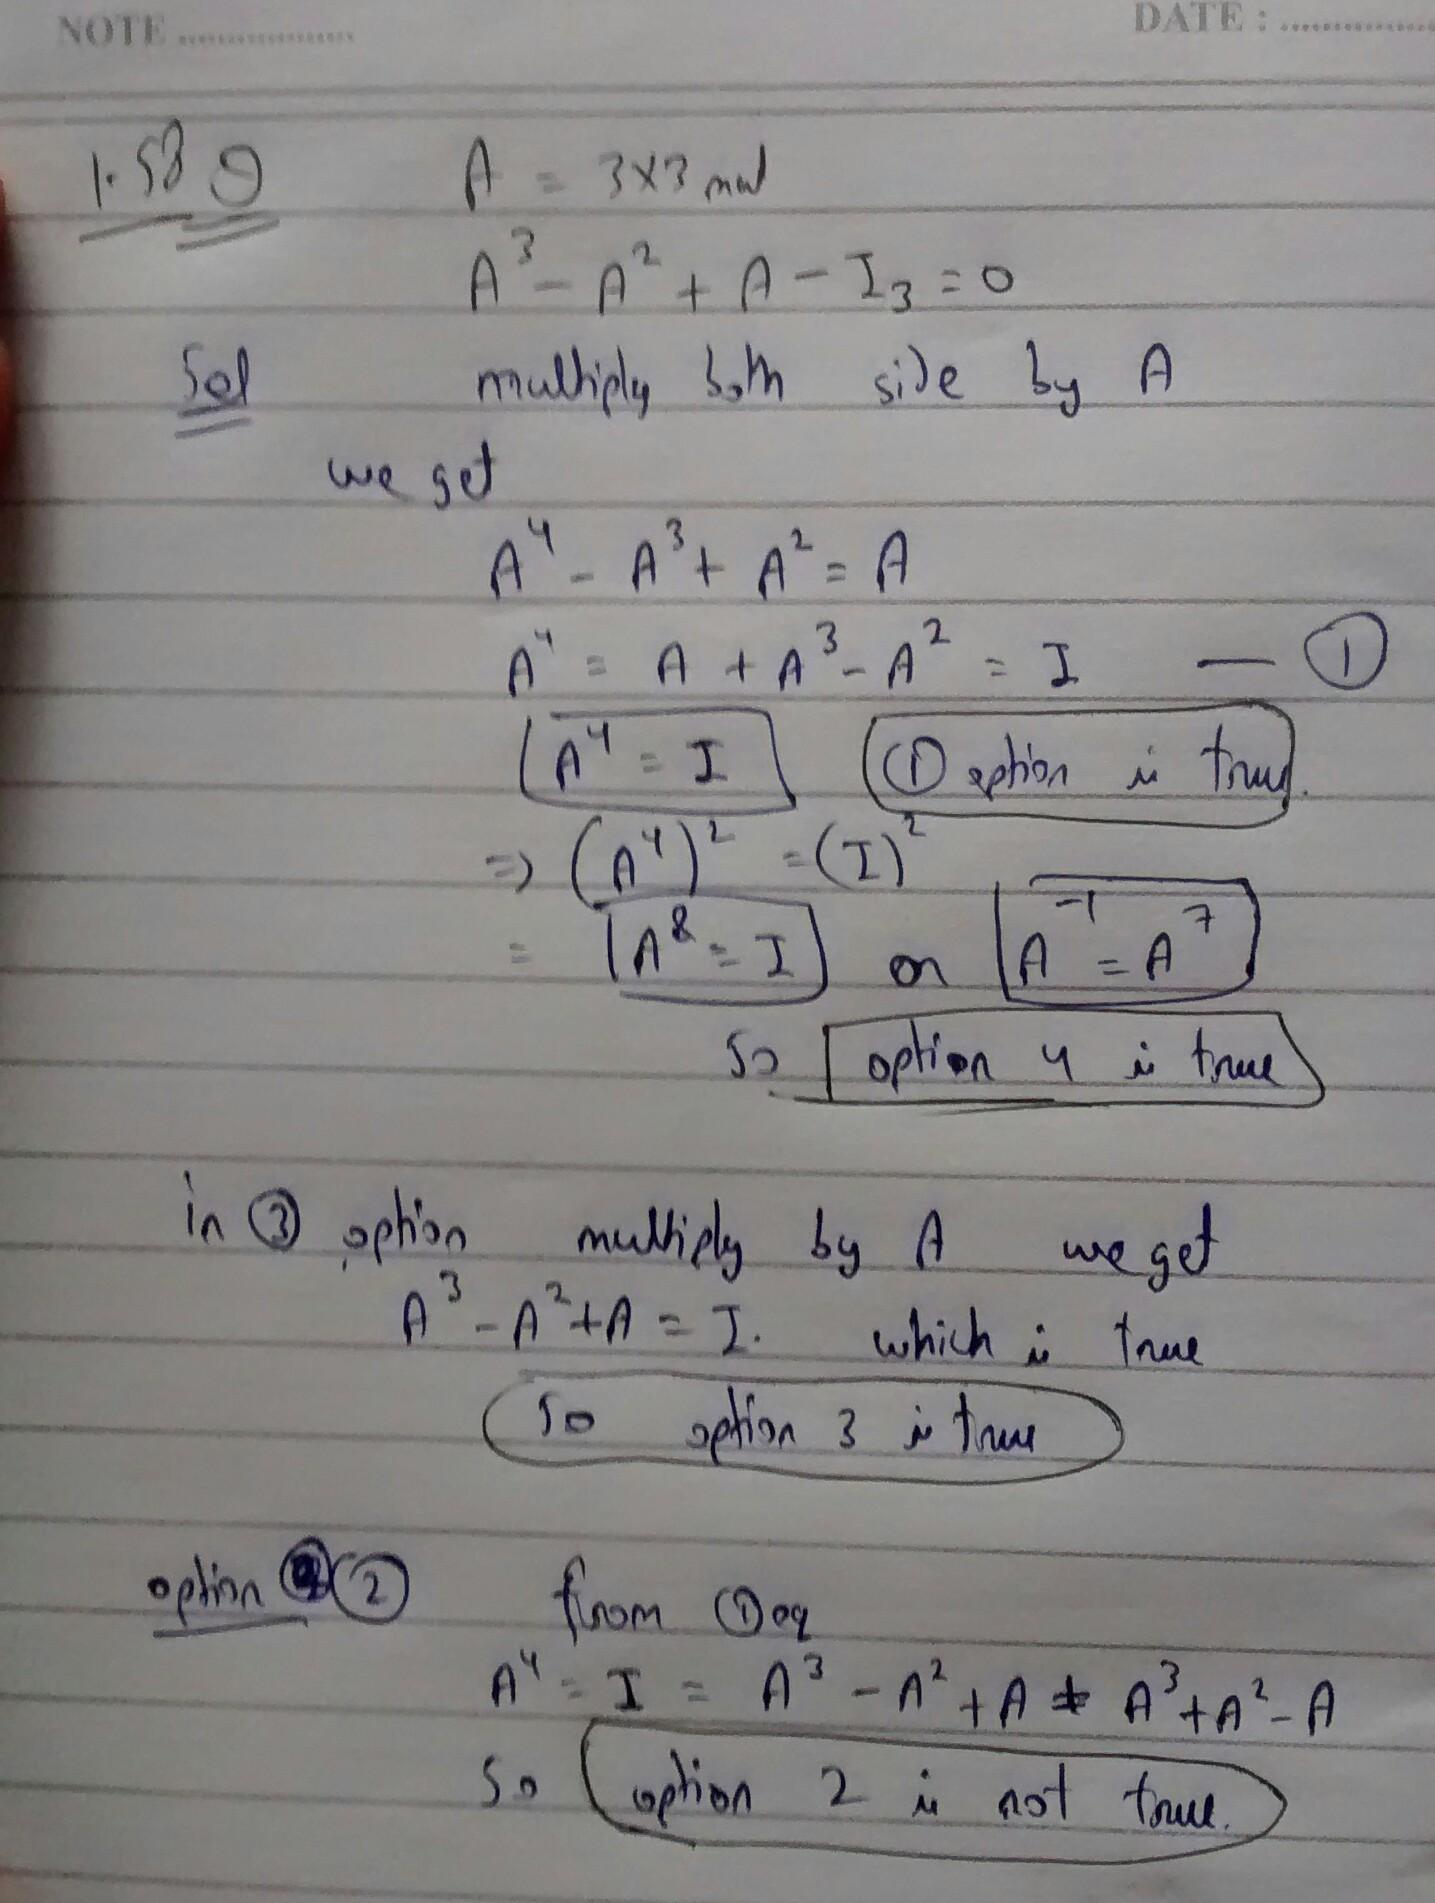 NOTE .................... DATE : ................
1.58 Q A = 3x3 mat
A³ - A² + A - I₃ = 0
Sol multiply both side by A
we get
A⁴ - A³ + A² = A
A⁴ = A + A³ - A² = I — ①
A⁴ = I ① option is true.
⇒ (A⁴)² = (I)²
= A⁸ = I or A⁻¹ = A⁷
So option 4 is true
in ③ option multiply by A we get
A³ - A² + A = I. which is true
So option 3 is true
option ② from ① eq
A⁴ = I = A³ - A² + A ≠ A³ + A² - A
So option 2 is not true.